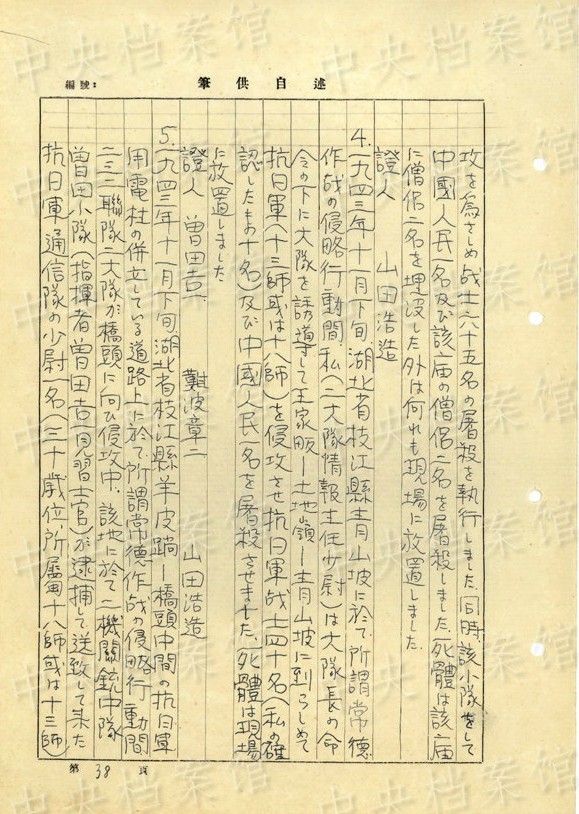 編號：
筆供自述
攻を為さしめ战士六十五名の屠殺を執行しました、同時、該小隊をして
中國人民一名及び該庙の僧侶二名を屠殺しました、死體は該庙
に僧侶二名を埋没した外は何れも現場に放置しました
證人 山田浩造
4. 一九四三年十一月下旬湖北省枝江縣青山坡に於て所謂常德
作战の侵略行動間私（一大隊情報主任少尉）は大隊長の命
令の下に大隊を誘導して王家畈―土地嶺―青山坡に到らしめて
抗日軍（十三師或は十八師）を侵攻させ抗日軍战士四十名（私の確
認したもの十名）及び中國人民一名を屠殺させました、死體は現場
に放置しました
證人 曽田吉一 難波章二 山田浩造
5. 一九四三年十一月下旬湖北省枝江縣羊皮𨂾―橋頭中間の抗日軍
用電柱の併立している道路上に於て所謂常德作战の侵略行動間
二三二聯隊一大隊が橋頭に向ひ侵攻中、該地に於て一機關銃中隊
曽田小隊（指揮者曽田吉一見習士官）が逮捕して送致して来た
抗日軍通信隊の少尉一名（三十歳位、所屬十八師或は十三師）
第 38 頁
中央档案馆